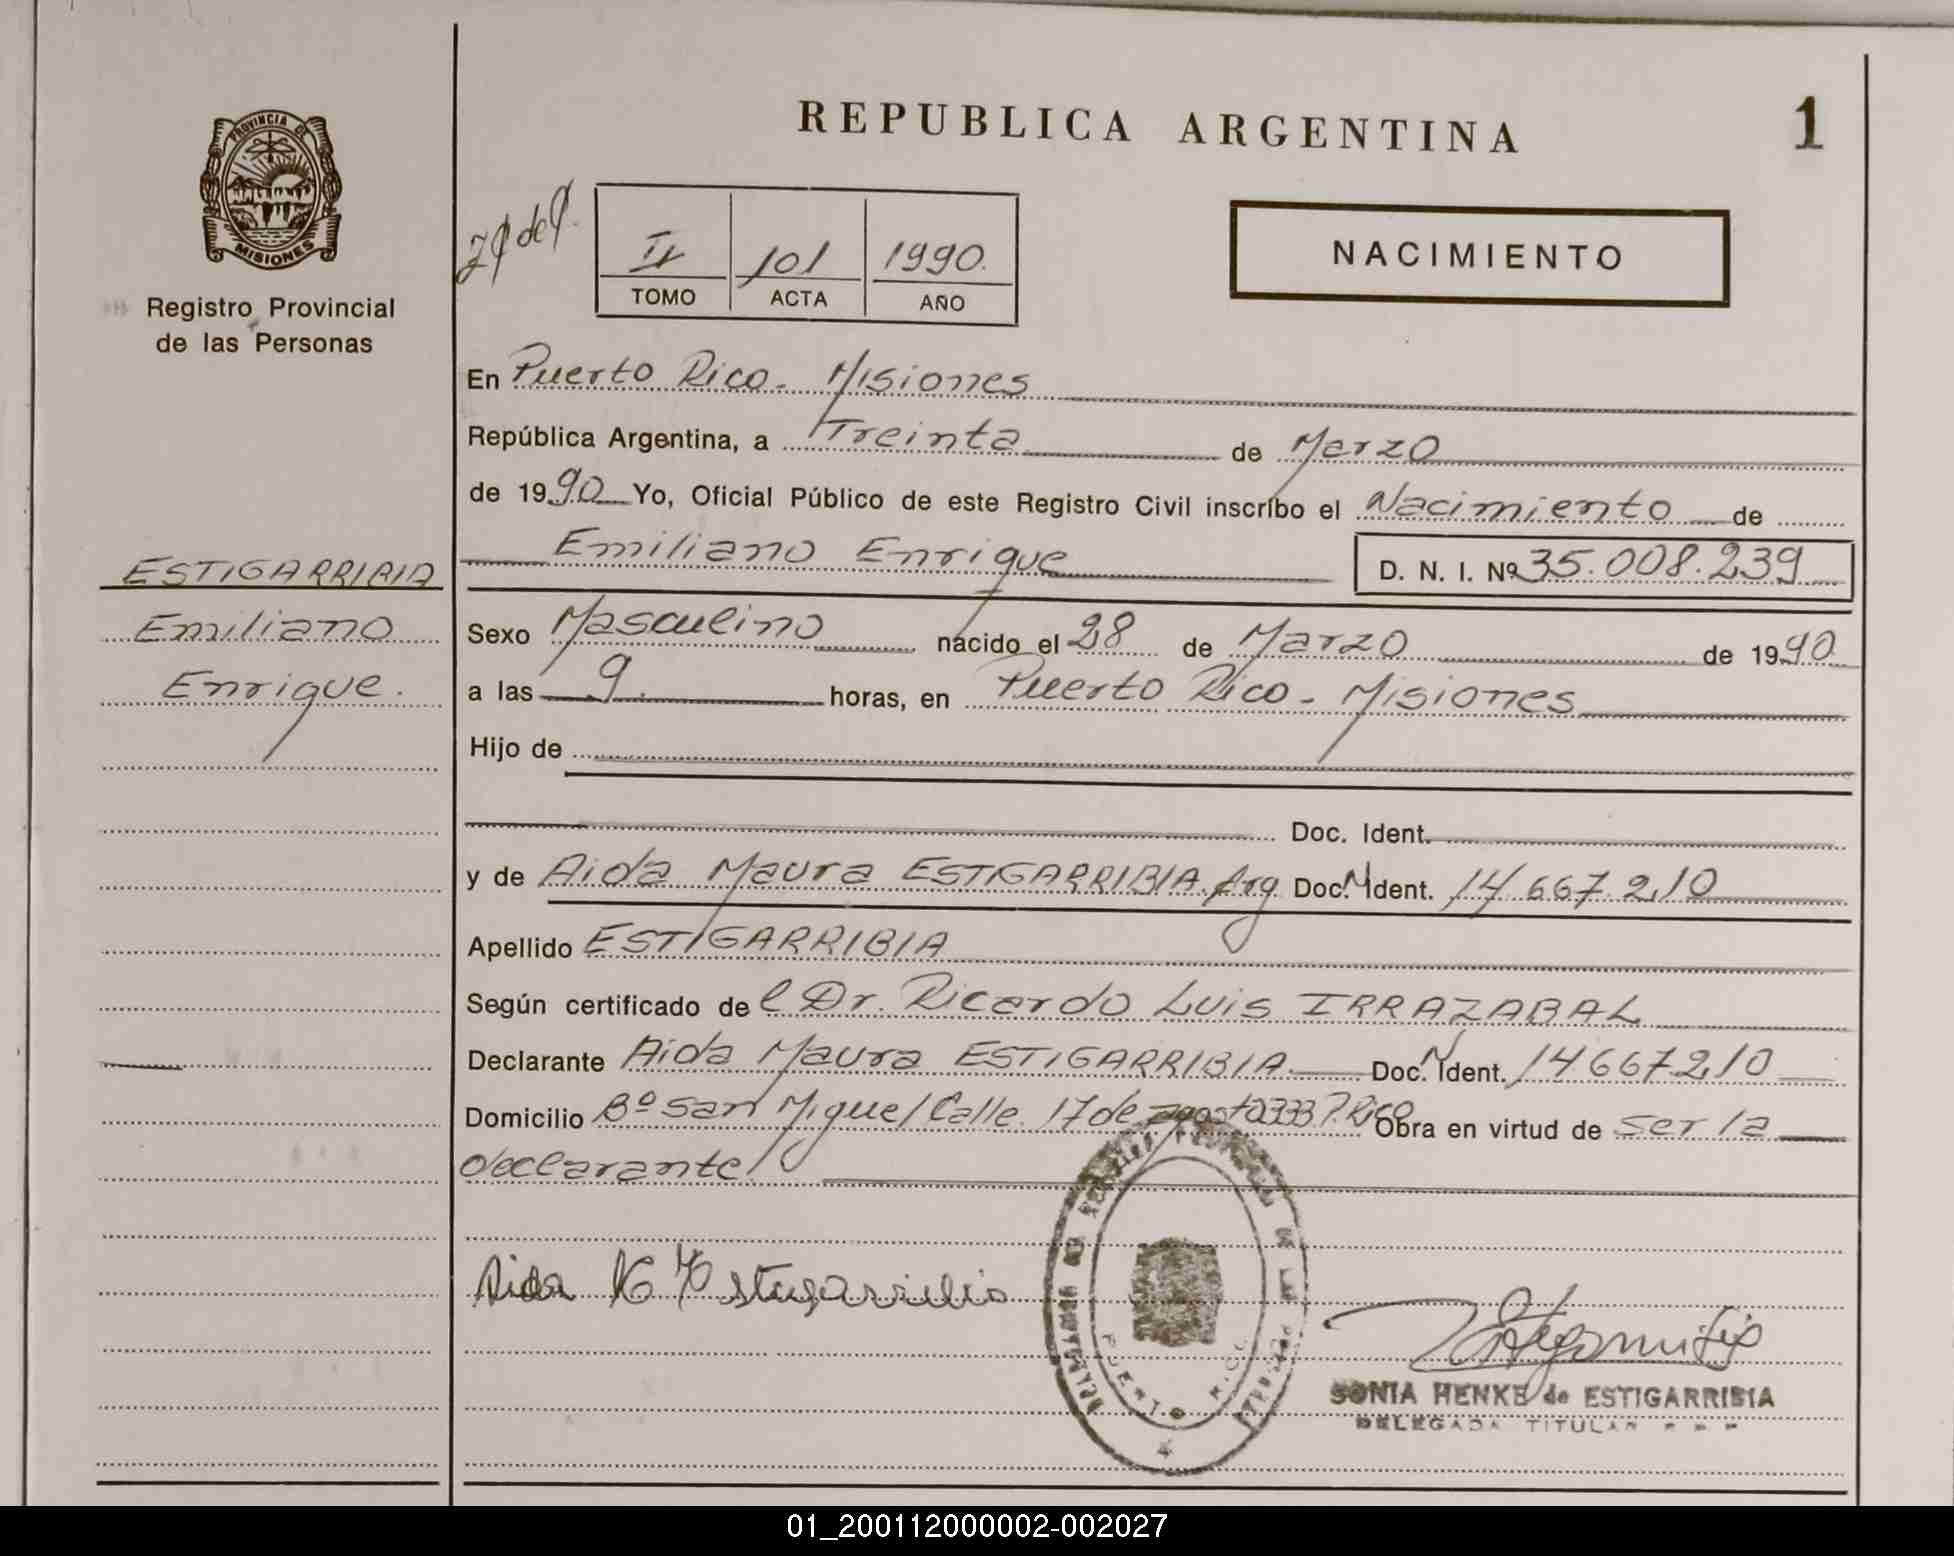 REPUBLICA ARGENTINA
1
PROVINCIA DE
MISIONES
Registro Provincial
de las Personas
II 101 1990.
TOMO ACTA AÑO
NACIMIENTO
En Puerto Rico - Misiones
República Argentina, a Treinta de Marzo
de 1990 Yo, Oficial Público de este Registro Civil inscribo el Nacimiento de
Emiliano Enrique D. N. I. Nº 35.008.239
ESTIGARRIBIA
Emiliano
Enrique.
Sexo Masculino nacido el 28 de Marzo de 1990
a las 9. horas, en Puerto Rico - Misiones
Hijo de
Doc. Ident.
y de Aida Maura ESTIGARRIBIA. Arg Doc. N Ident. 14.667.210
Apellido ESTIGARRIBIA
Según certificado del Dr. Ricardo Luis IRRAZABAL
Declarante Aida Maura ESTIGARRIBIA Doc. N Ident. 14667210
Domicilio Bº San Miguel Calle. 17 de agosto 333 P. Rico Obra en virtud de ser la
declarante
Aida M Estigarribia
PUERTO RICO
SONIA HENKE de ESTIGARRIBIA
DELEGADA TITULAR
01_200112000002-002027